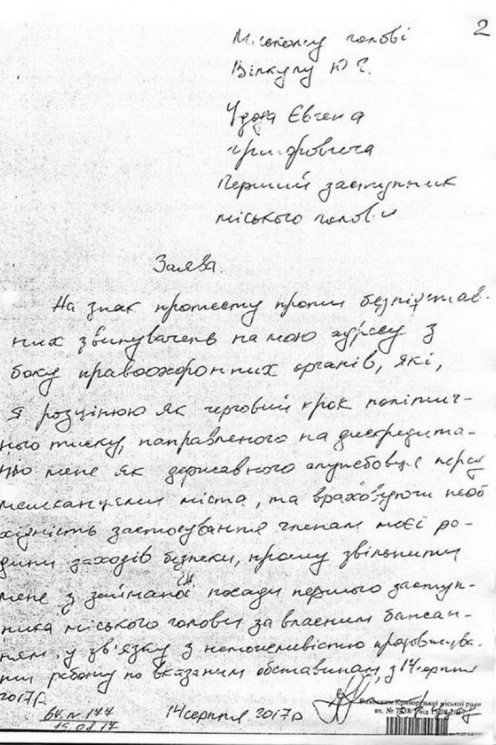 2
Міському голові
Вілкулу Ю Г.
Удода Євгена
Григоровича
Перший заступник
міського голови
Заява.
На знак протесту проти безпідстав-
них звинувачень на мою адресу з
боку правоохоронних органів, які,
я розцінюю як черговий крок політич-
ного тиску, направленого на дискредита-
цію мене як державного службовця перед
мешканцями міста, та враховуючи необ
хідність застосування членам моєї ро-
дини заходів безпеки, прошу звільнити
мене з займаної посади першого заступ-
ника міського голови за власним бажан-
ням, у зв'язку з неможливістю продовжува-
ти роботу по вказаним обставинам, з 14 серпня
2017р.
14 серпня 2017р
Виконком Криворізької міської ради
вх. №